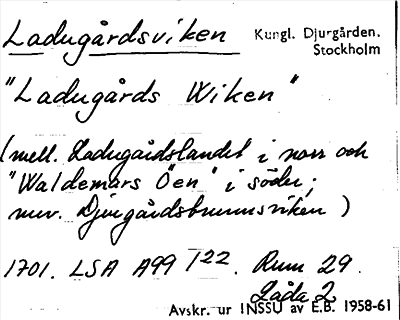 Ladugårdsviken Kungl. Djurgården.
Stockholm
"Ladugårds Wiken"
(mell. Ladugårdslandet i norr och
"Waldemars Öen" i söder;
nuv. Djurgårdsbrunnsviken)
1701. LSA A99 1 22. Rum 29.
Låda 2
Avskr. ur INSSU av E.B. 1958-61